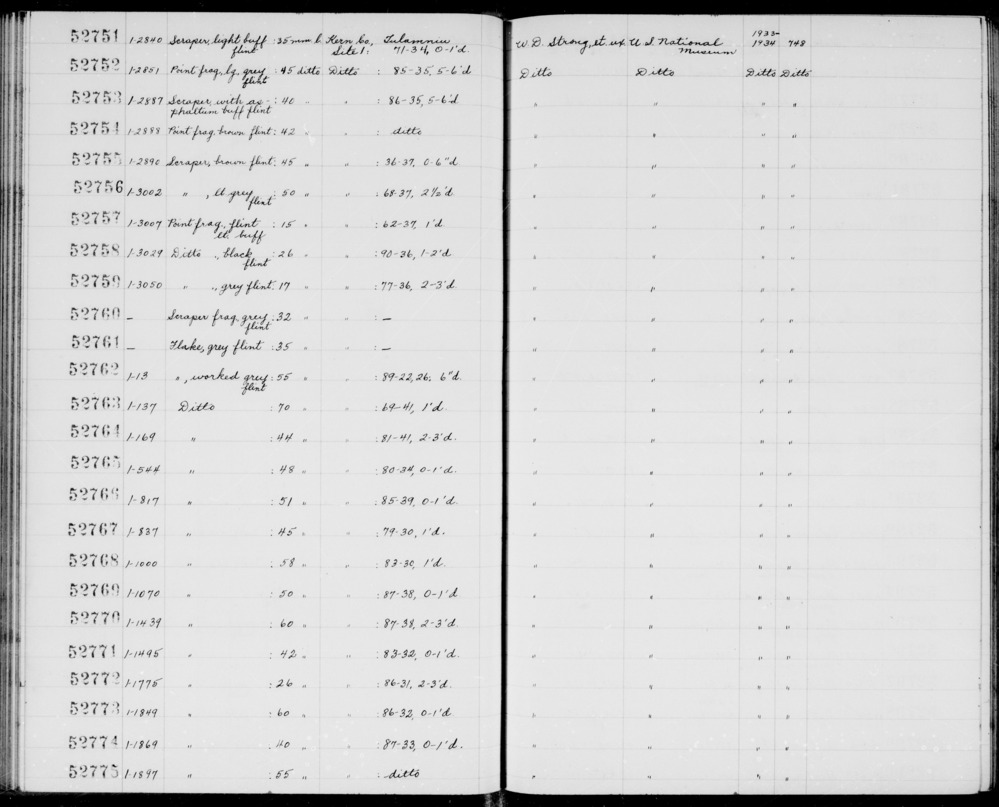 52751 1-2840 Scraper, light buff flint : 35 mm l. Kern Co., Site 1: Tulamniu 71-34, 0-1'd. W. D. Strong, et ux. U S. National Museum 1933-1934 748
52752 1-2851 Point frag., lg. grey flint : 45 ditto Ditto : 85-35, 5-6'd Ditto Ditto Ditto Ditto
52753 1-2887 Scraper, with asphaltum buff flint : 40 " " : 86-35, 5-6'd " " " "
52754 1-2888 Point frag. brown flint : 42 " " : ditto " " " "
52755 1-2890 Scraper, brown flint : 45 " " : 36-37, 0-6"d " " " "
52756 1-3002 " , lt grey flint : 50 " " : 68-37, 2½'d. " " " "
52757 1-3007 Point frag., flint lt. buff : 15 " " : 62-37, 1'd " " " "
52758 1-3029 Ditto ., black flint : 26 " " : 90-36, 1-2'd " " " "
52759 1-3050 " ., grey flint : 17 " " : 77-36, 2-3'd. " " " "
52760 — Scraper frag. grey flint : 32 " " : — " " " "
52761 — Flake, grey flint : 35 " " : — " " " "
52762 1-13 " , worked grey flint : 55 " " : 89-22, 26, 6"d. " " " "
52763 1-137 Ditto : 70 " " : 69-41, 1'd. " " " "
52764 1-169 " : 44 " " : 81-41, 2-3'd. " " " "
52765 1-544 " : 48 " " : 80-34, 0-1'd. " " " "
52766 1-817 " : 51 " " : 85-39, 0-1'd. " " " "
52767 1-837 " : 45 " " : 79-30, 1'd. " " " "
52768 1-1000 " : 58 " " : 83-30, 1'd. " " " "
52769 1-1070 " : 50 " " : 87-38, 0-1'd " " " "
52770 1-1439 " : 60 " " : 87-38, 2-3'd. " " " "
52771 1-1495 " : 42 " " : 83-32, 0-1'd. " " " "
52772 1-1775 " : 26 " " : 86-31, 2-3'd. " " " "
52773 1-1849 " : 60 " " : 86-32, 0-1'd " " " "
52774 1-1869 " : 40 " " : 87-33, 0-1'd. " " " "
52775 1-1897 " : 55 " " : ditto " " " "